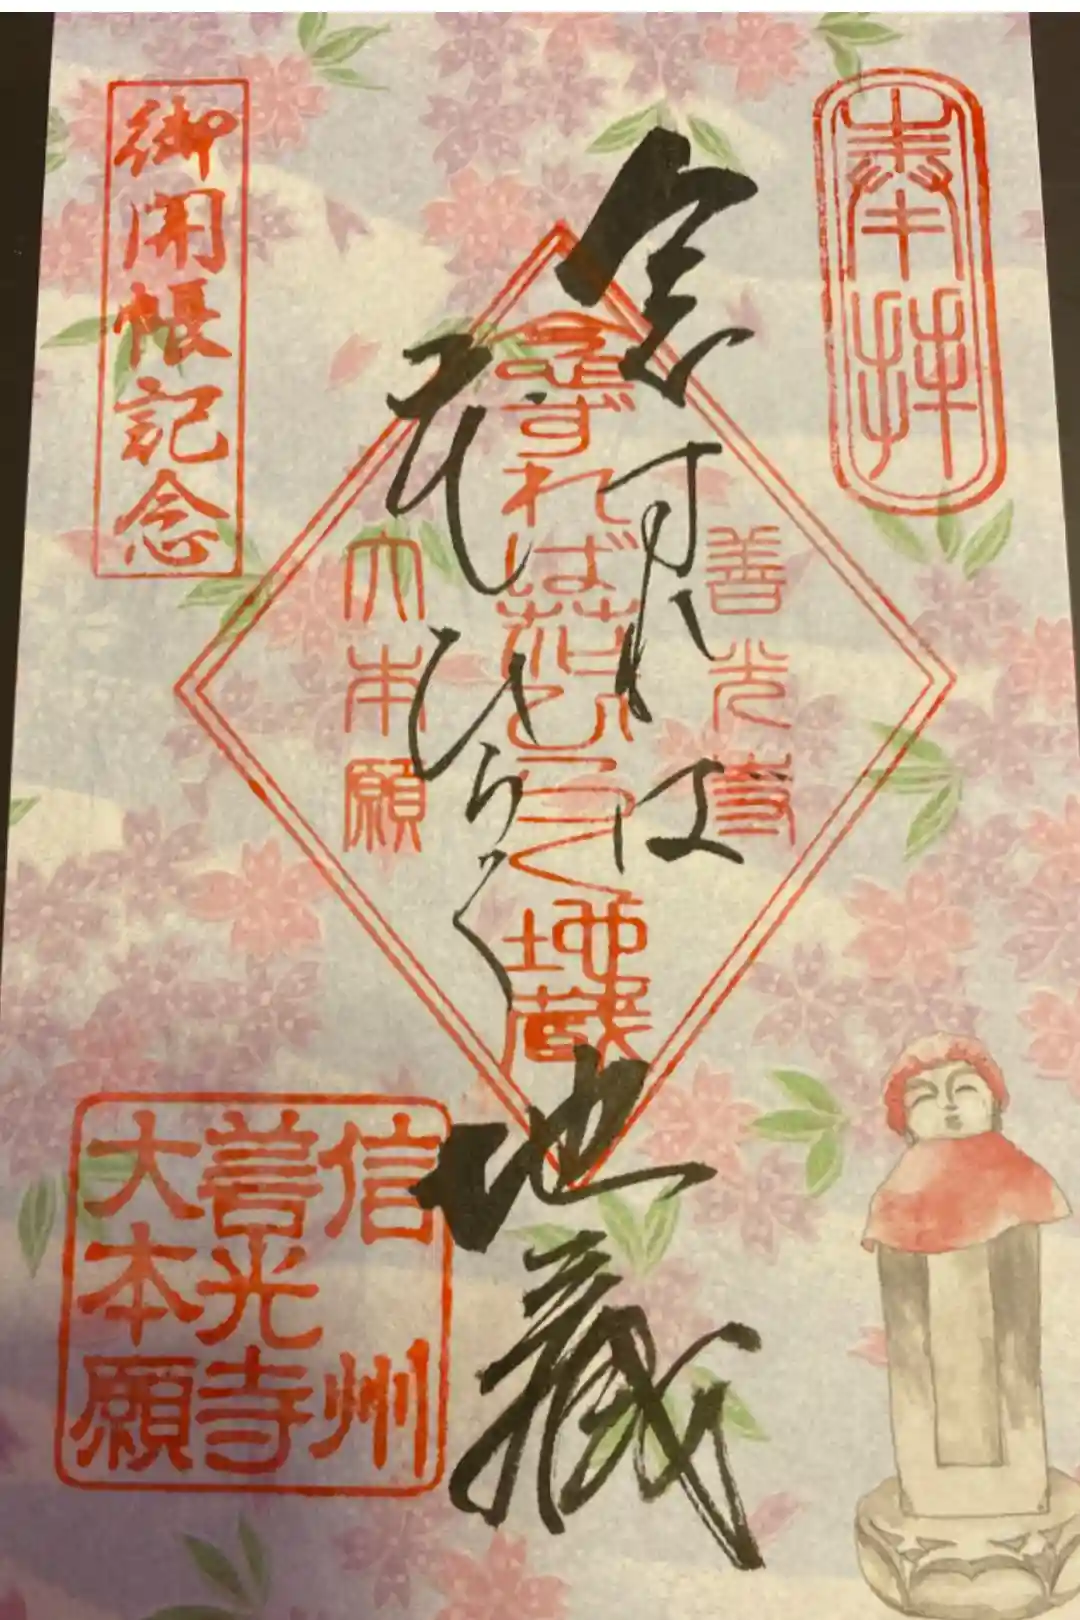 奉拝
念すれは
花ひらく
地蔵
善光寺
念ずれば花ひらく地蔵
大本願
御開帳記念
信州
善光寺
大本願